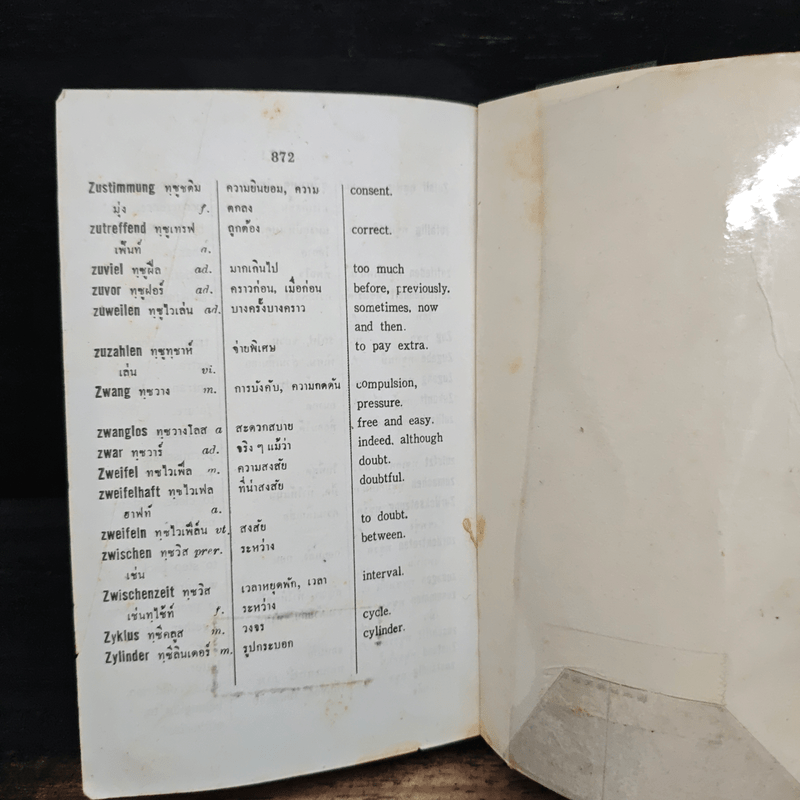 872
Zustimmung ทฺซูชติม ความยินยอม, ความ consent.
มุ่ง f. ตกลง
zutreffend ทฺซูเทรฟ ถูกต้อง correct.
เพ็นท์ a.
zuviel ทฺซูฝีล ad. มากเกินไป too much
zuvor ทฺซูฝอร์ ad. คราวก่อน, เมื่อก่อน before, previously.
zuweilen ทฺซูไวเล่น ad. บางครั้งบางคราว sometimes, now
and then.
zuzahlen ทฺซูทฺซาห์ จ่ายพิเศษ to pay extra.
เล่น vi.
Zwang ทฺซวาง m. การบังคับ, ความกดดัน compulsion,
pressure.
zwanglos ทฺซวางโลส a สะดวกสบาย free and easy.
zwar ทฺซวาร์ ad. จริง ๆ แม้ว่า indeed, although
Zweifel ทฺซไวเฟิล m. ความสงสัย doubt.
zweifelhaft ทฺซไวเฟล ที่น่าสงสัย doubtful.
ฮาฟท์ a.
zweifeln ทฺซไวเฟิล์น vt. สงสัย to doubt.
zwischen ทฺซวิส prer. ระหว่าง between.
เช่น
Zwischenzeit ทฺซวิส เวลาหยุดพัก, เวลา interval.
เช่นทฺไซ้ท์ f. ระหว่าง
Zyklus ทฺซีคลูส m. วงจร cycle.
Zylinder ทฺซีลินเดอร์ m. รูปกระบอก cylinder.